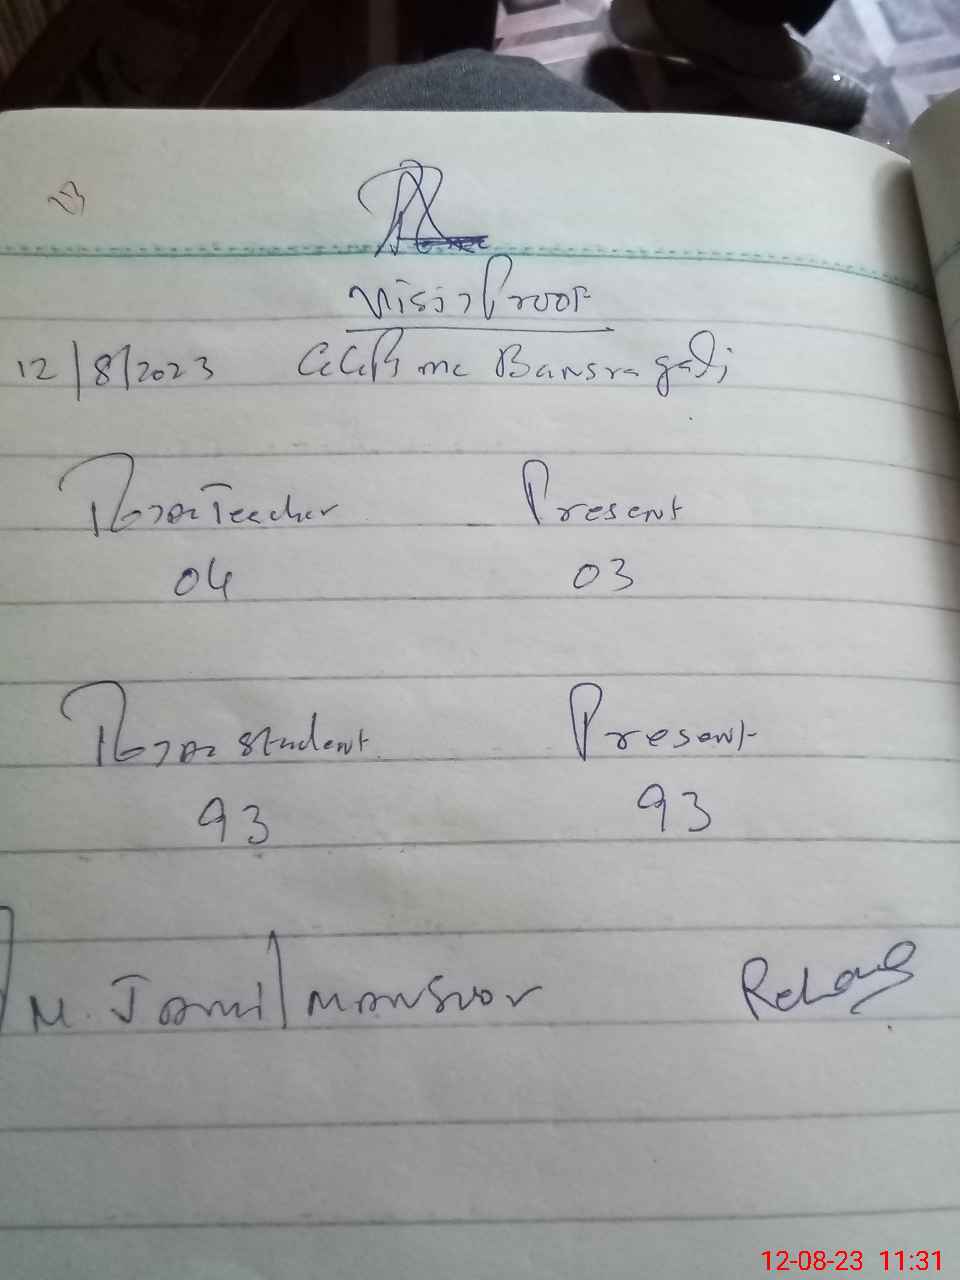 Visit Proof
12/8/2023 GGPS mc Bansra gali
Total Teacher Present
04 03
Total student Present
93 93
M. Jamil Mansoor
12-08-23 11:31